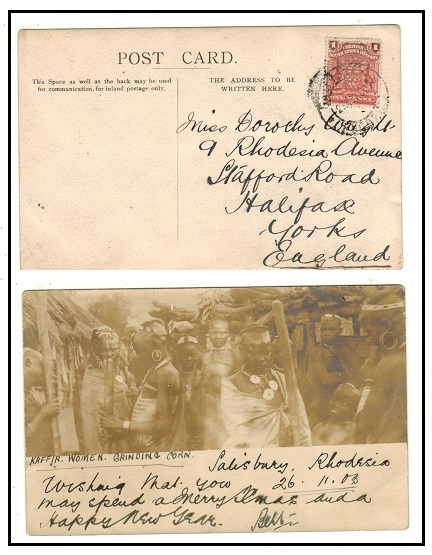 POST CARD.
This Space as well as the back may be used
for communication, for inland postage only.
THE ADDRESS TO BE
WRITTEN HERE.
1 1
Miss Dorothy
9 Rhodesia Avenue
Stafford Road
Halifax
Yorks
England
KAFFIR. WOMEN. GRINDING CORN.
Salisbury, Rhodesia
26. 11. 08
Wishing that you
may spend a Merry Xmas and a
Happy New Year.